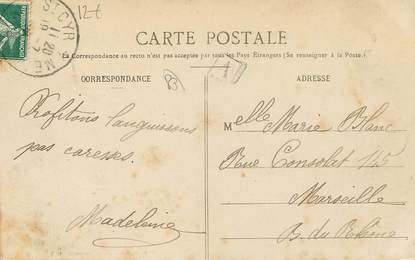 12€
CARTE POSTALE
La Correspondance au recto n'est pas acceptée par tous les Pays Etrangers (Se renseigner à la Poste)
CORRESPONDANCE
ADRESSE
Profitons languissons
pas caresses.
Madeleine
Melle Marie Blanc
Rue Consolat 115
Marseille
B. du Rhône
ST CYR